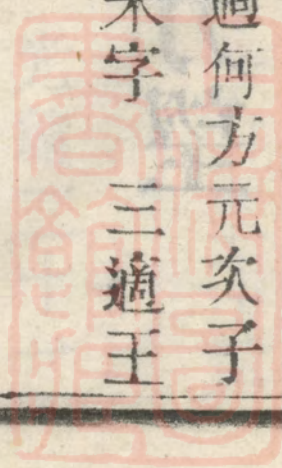 適何方元次子
未字 三適王